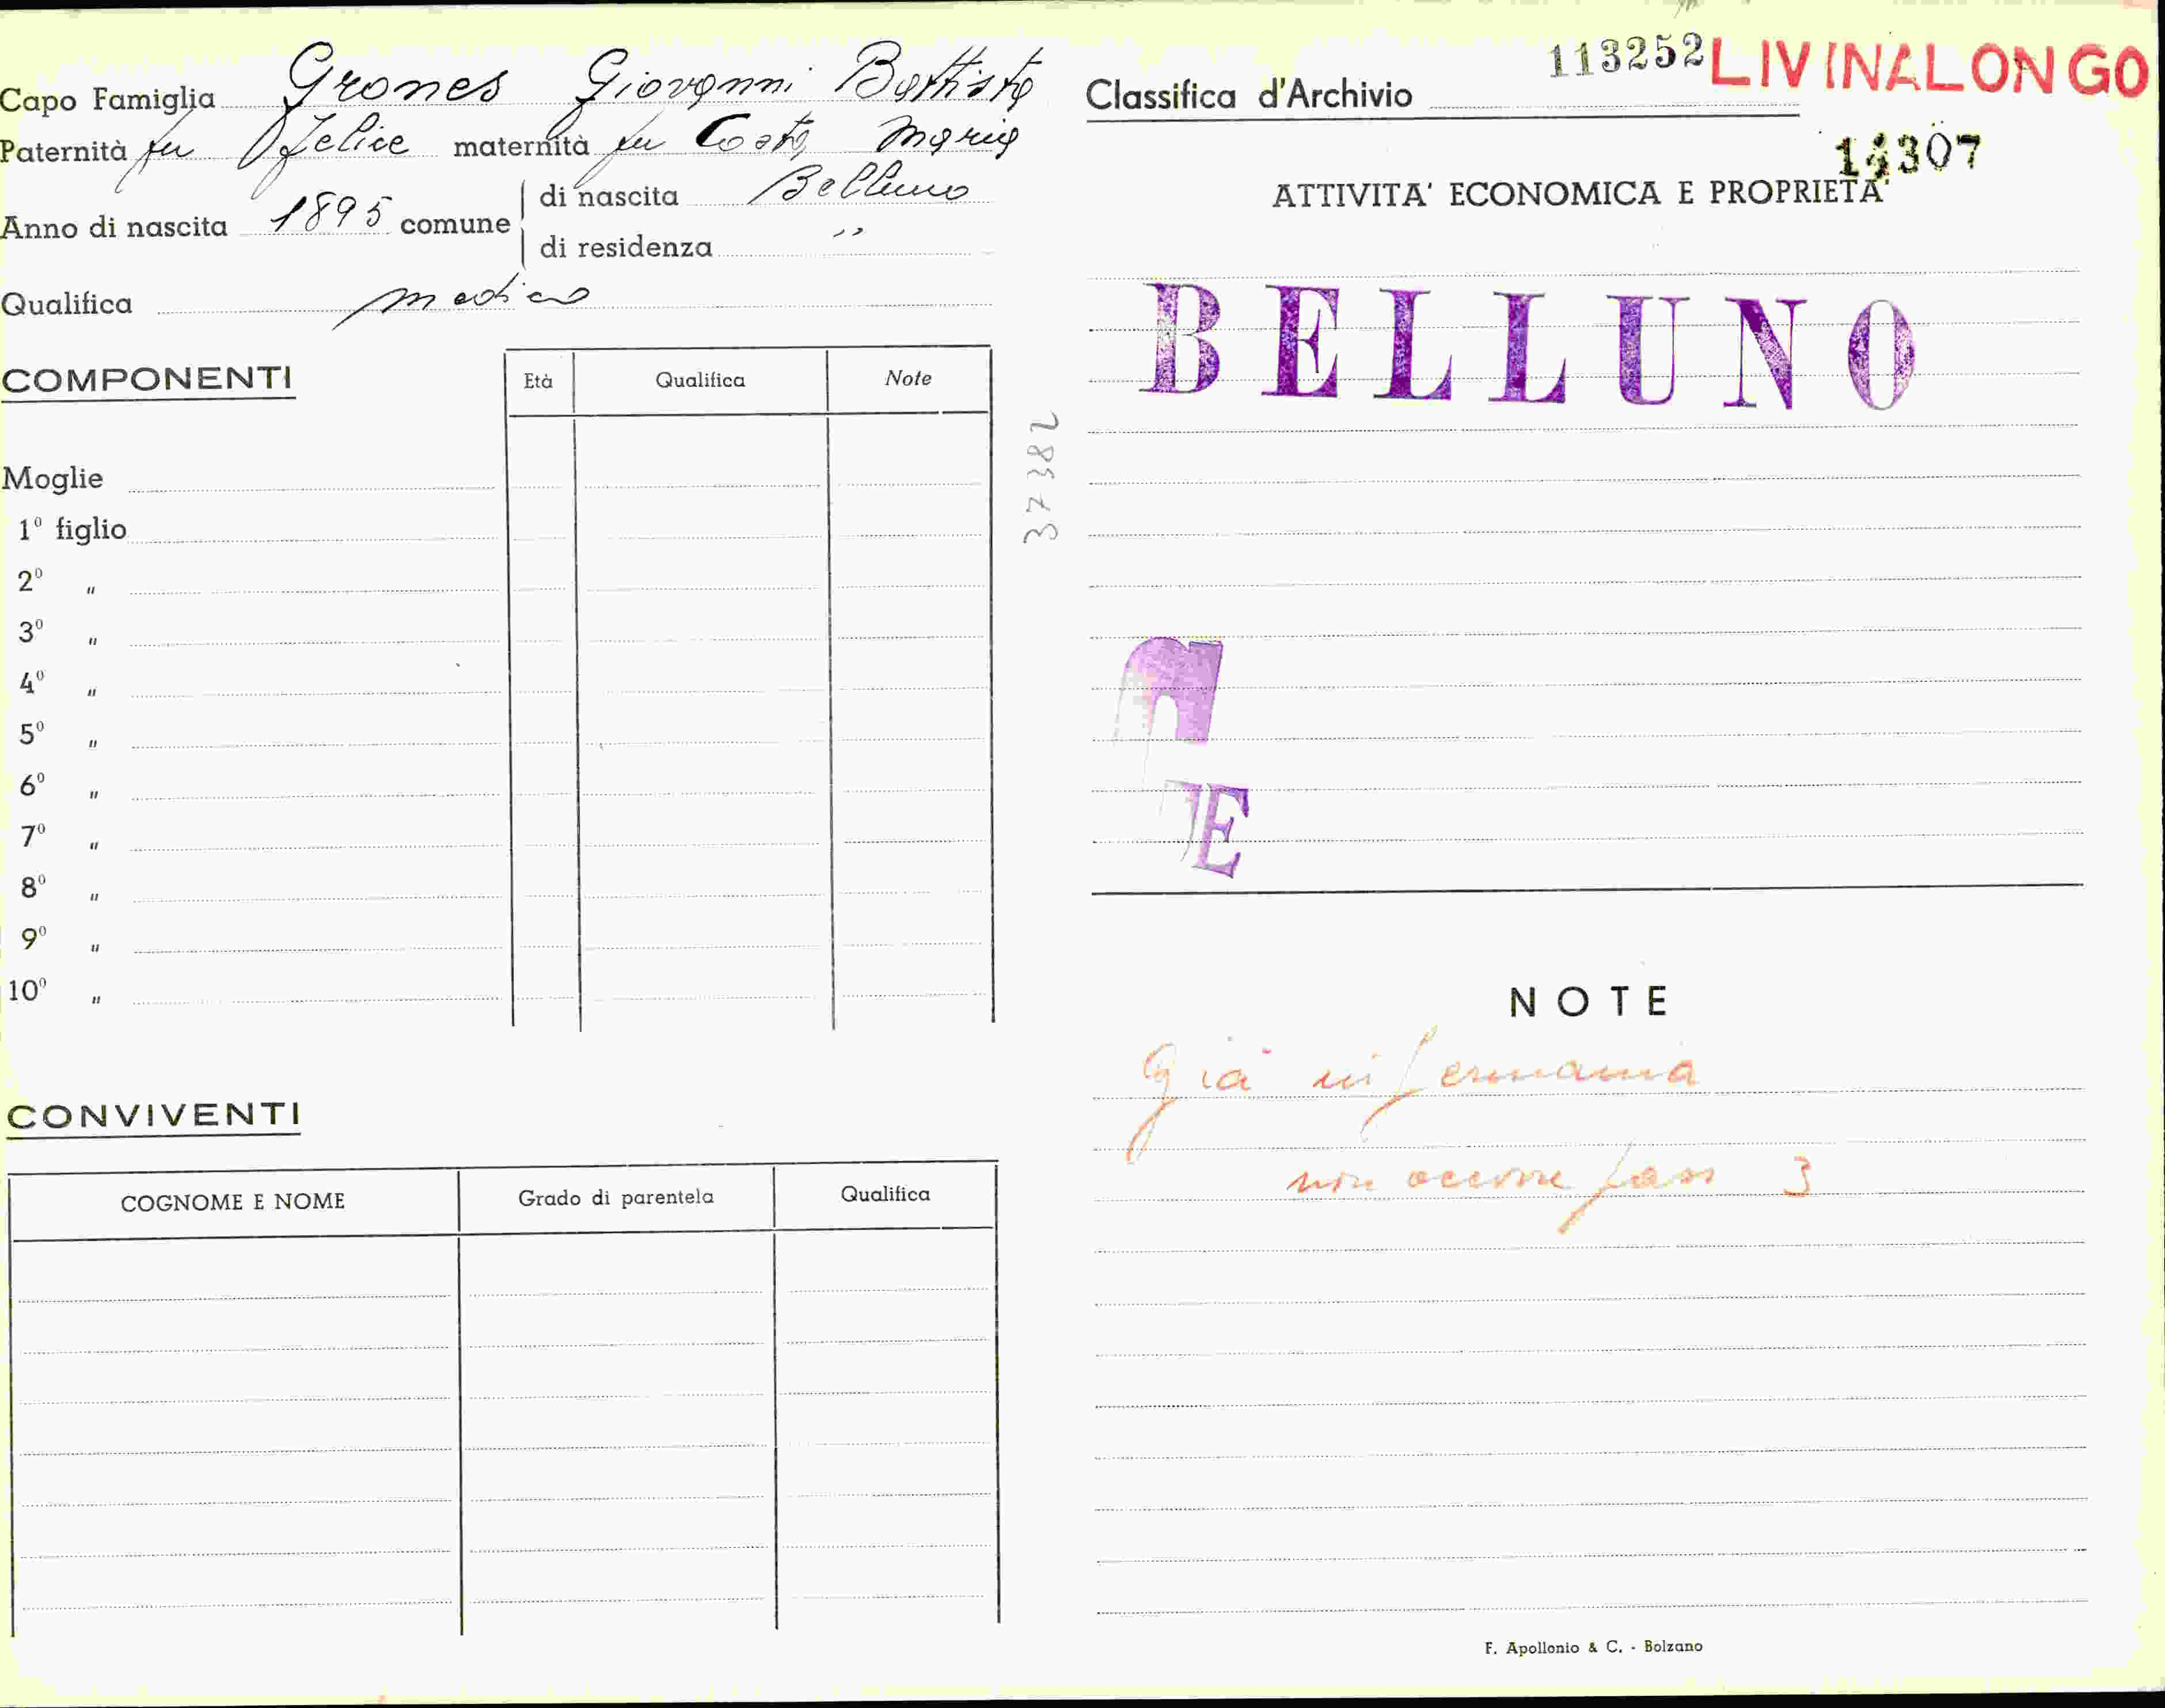 Capo Famiglia Grones Giovanni Battista
Paternità fu Felice maternità fu Costa Maria
Anno di nascita 1895 comune
di nascita Belluno
di residenza "
Qualifica medico
COMPONENTI
Età Qualifica Note
Moglie
1º figlio
2º "
3º "
4º "
5º "
6º "
7º "
8º "
9º "
10º "
CONVIVENTI
COGNOME E NOME Grado di parentela Qualifica
37382
113252 LIVINALONGO
Classifica d'Archivio
14307
ATTIVITA' ECONOMICA E PROPRIETA'
BELLUNO
E
NOTE
Già in Germania
non occorre pass 3
F. Apollonio & C. - Bolzano